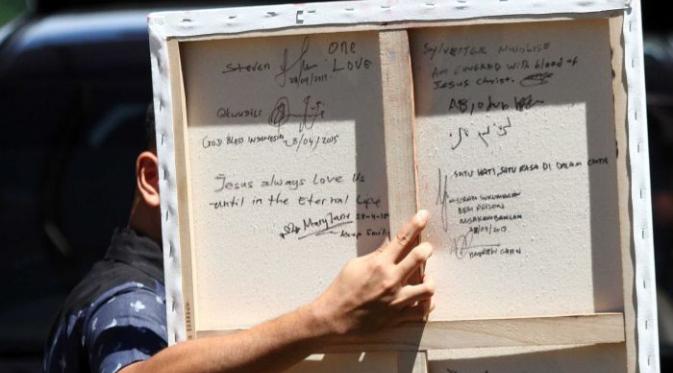 Steven
ONE
LOVE
28/04/2015
Okwudili
GOD BLESS INDONESIA 28/04/2015
Jesus always Love Us
until in the Eternal Life
Mary Jane 28-4-15
Keep Smile
SYLVESTER NWOLISE
AM COVERED WITH blood of
JESUS CHRIST.
SATU HATI, SATU RASA DI DALAM CINTA
MYURAN SUKUMARAN
BESI PRISON
NUSAKAMBANGAN
28/04/2015
ANDREW CHAN